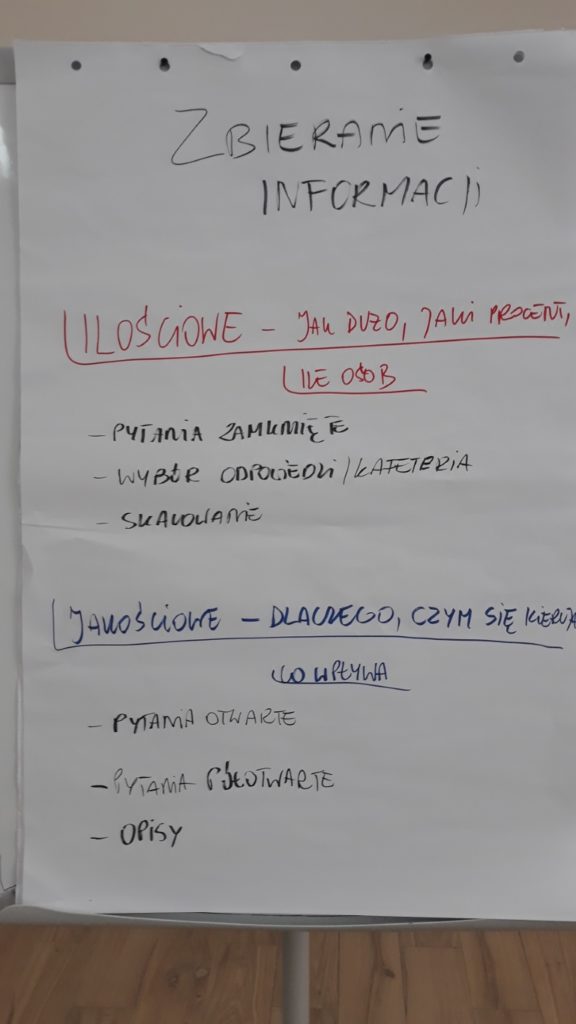 ZBIERANIE
INFORMACJI
ILOŚCIOWE – JAK DUŻO, JAKI PROCENT,
ILE OSÓB
– PYTANIA ZAMKNIĘTE
– WYBÓR ODPOWIEDZI / KAFETERIA
– SKALOWANIE
JAKOŚCIOWE – DLACZEGO, CZYM SIĘ KIERUJĄ
CO WPŁYWA
– PYTANIA OTWARTE
– PYTANIA PÓŁOTWARTE
– OPISY